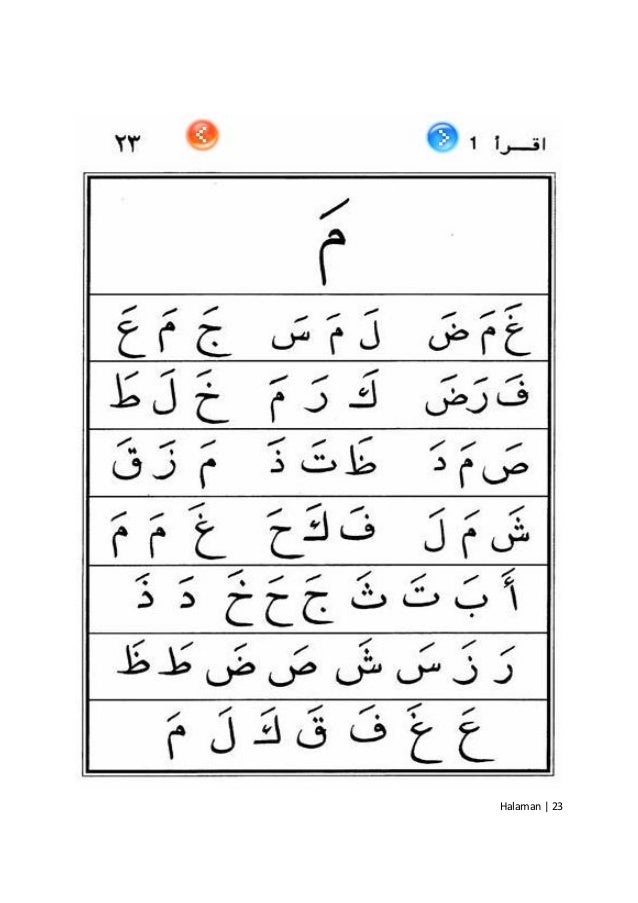 اقـــرأ 1 ٢٣
مَ
غَ مَ ضَ لَ مَ سَ جَ مَ عَ
فَ رَ ضَ كَ رَ مَ خَ لَ طَ
صَ مَ دَ ظَ تَ ذَ مَ زَ قَ
شَ مَ لَ فَ كَ حَ غَ مَ مَ
أَ بَ تَ ثَ جَ حَ خَ دَ ذَ
رَ زَ سَ شَ صَ ضَ طَ ظَ
عَ غَ فَ قَ كَ لَ مَ
Halaman | 23